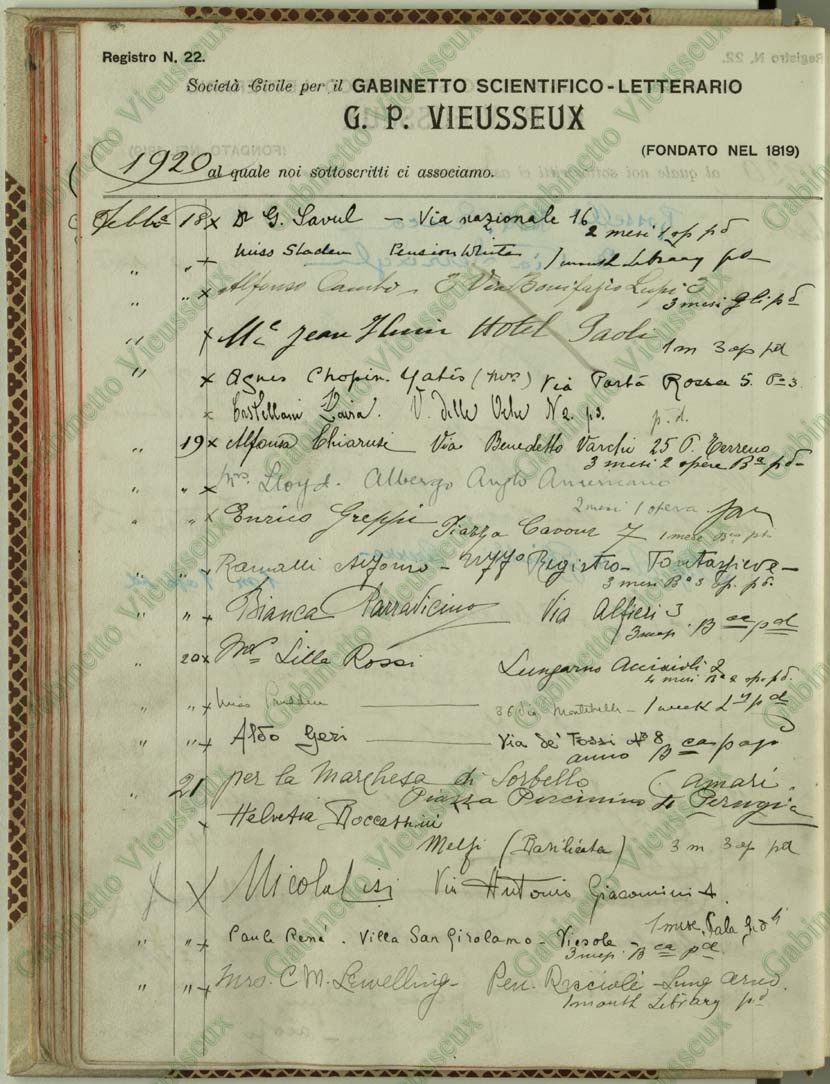 Registro N. 22.
Società Civile per il GABINETTO SCIENTIFICO-LETTERARIO
G. P. VIEUSSEUX
(FONDATO NEL 1819)
1920 al quale noi sottoscritti ci associamo.
Febb° 18 x Dr G. Savul — Via nazionale 16
2 mesi 1 op pd
" " + Miss Staden Pension White 1 month Library pd
" " x Alfonso Via Bonifazio Lupi 3
3 mesi pd
" x Jean Hotel Paoli
1 m 3 op pd
" x Agnes Chopin Yates (Mrs) Via Porta Rossa 5. Po 3
x Castellani V. delle N 2. p.d.
" 19 x Alfonso Chiarusi Via Benedetto Varchi 25 P. Terreno
3 mesi 2 opere Ba pd
" " x Mrs. Lloyd. Albergo Anglo Americano
2 mesi 1 opera
" x Enrico Greppi Piazza Cavour 7 1 mese
" " Ramalli Alfonso — Registro — Pontassieve —
3 mesi Ba 3 Op. pd.
" " + Bianca Parravicino Via Alfieri 3
3 mesi. B ca pd
" 20 x Lilla Rossi Lungarno Acciaioli 2
4 mesi Ba 2 op. pd.
" " x Miss 36 Via Montebello — 1 week Ly pd
" " + Aldo Geri Via de' Tossi No 8
anno B ca pago
" 21 per la Marchesa di Sorbello
Piazza Piccinino Perugia
x Helvetia Boccassini
Melfi (Basilicata) 3 m 3 op pd
x x Nicola Lisi Via Antonio Giacomini 4
1 mese, Sala
" " + Paule René. Villa San Girolamo — Fiesole —
3 mesi. B ca pd.
" " + Mrs. C. M. Lewelling — Pen. Riccioli — Lung'arno.
1 month Library pd